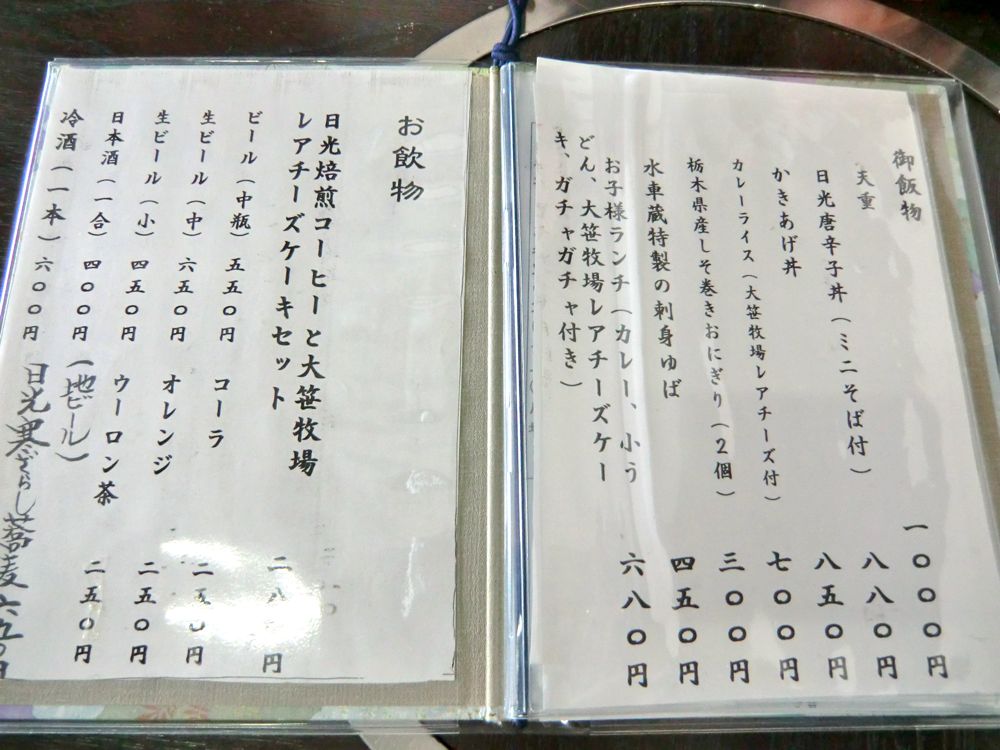 御飯物
天重 一〇〇〇円
日光唐辛子丼（ミニそば付） 八八〇円
かきあげ丼 八五〇円
カレーライス（大笹牧場レアチーズ付） 七〇〇円
栃木県産しそ巻きおにぎり（２個） 三〇〇円
水車蔵特製の刺身ゆば 四五〇円
お子様ランチ（カレー、小う
どん、大笹牧場レアチーズケー
キ、ガチャガチャ付き） 六八〇円
お飲物
日光焙煎コーヒーと大笹牧場
レアチーズケーキセット
ビール（中瓶） 五五〇円 コーラ 二五〇円
生ビール（中） 六五〇円 オレンジ 二五〇円
生ビール（小） 四五〇円 ウーロン茶 二五〇円
日本酒（一合） 四〇〇円 （地ビール）
冷酒（一本） 六〇〇円 日光寒ざらし蕎麦 六五〇円